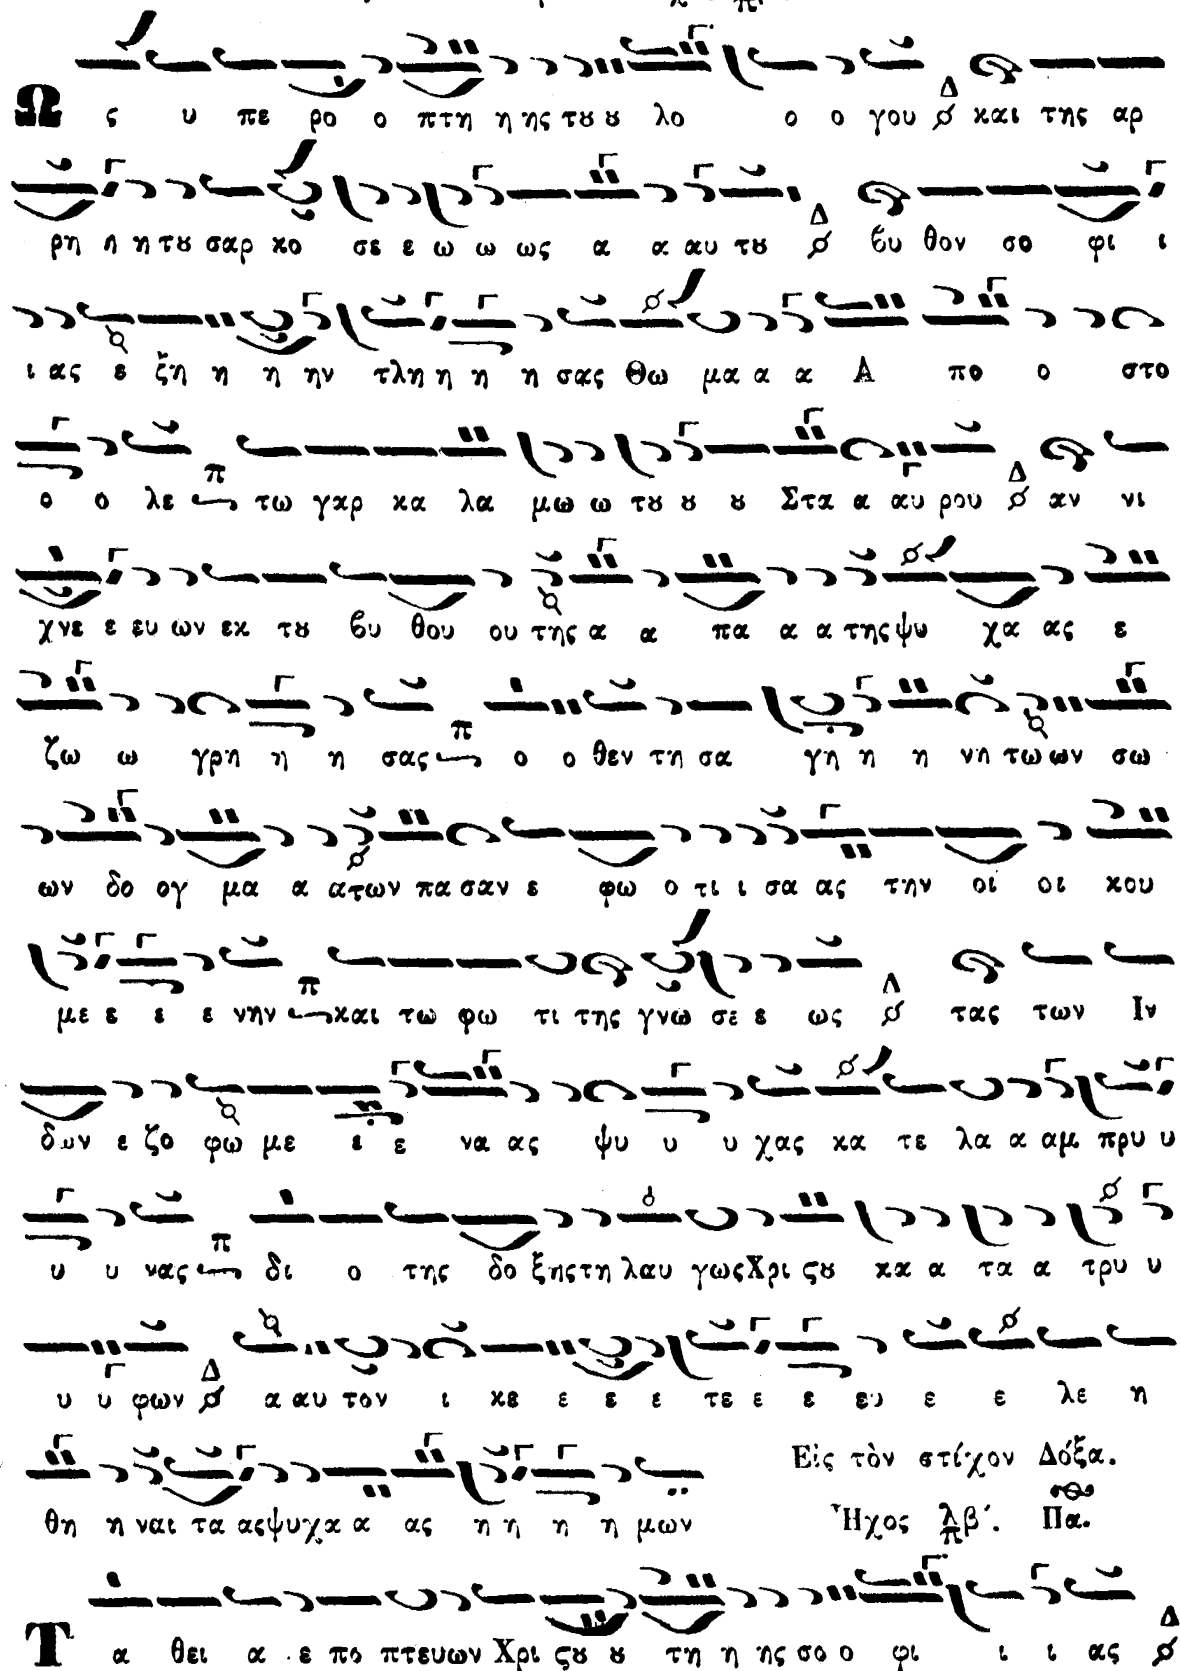 Ως υ πε ρο ο πτη η ης τȣ ȣ λο ο ο γου Δ και της αρ
ρη η η τȣ σαρ κο σε ε ω ω ως α α αυ τȣ Δ βυ θον σο φι ι
ι ας ε ξη η η ην τλη η η η σας Θω μα α α Α πο ο στο
ο ο λε π τω γαρ κα λα μω ω τȣ ȣ ȣ Στα α αυ ρου Δ αν νι
χνε ε ευ ων εκ τȣ βυ θου ου της α α πα α α της ψυ χα ας ε
ζω ω γρη η η σας π ο ο θεν τη σα γη η η νη τω ων σω
ων δο ογ μα α α των πα σαν ε φω ο τι ι σα ας την οι οι κου
με ε ε ε νην π και τω φω τι της γνω σε ε ως Δ τας των Ιν
δων ε ζο φω με ε ε να ας ψυ υ υ χας κα τε λα α αμ πρυ υ
υ υ νας π δι ο της δο ξης τη λαυ γως Χρι ςȣ κα α τα α τρυ υ
υ υ φων Δ α αυ τον ι κε ε ε ε τε ε ε ευ ε ε λε η
θη η ναι τα ας ψυ χα α ας η η η η μων
Εἰς τὸν στίχον Δόξα.
Ἦχος λ π β΄. Πα.
Τ α θει α ε πο πτευων Χρι ςȣ ȣ τη η ης σο ο φι ι ι ας Δ